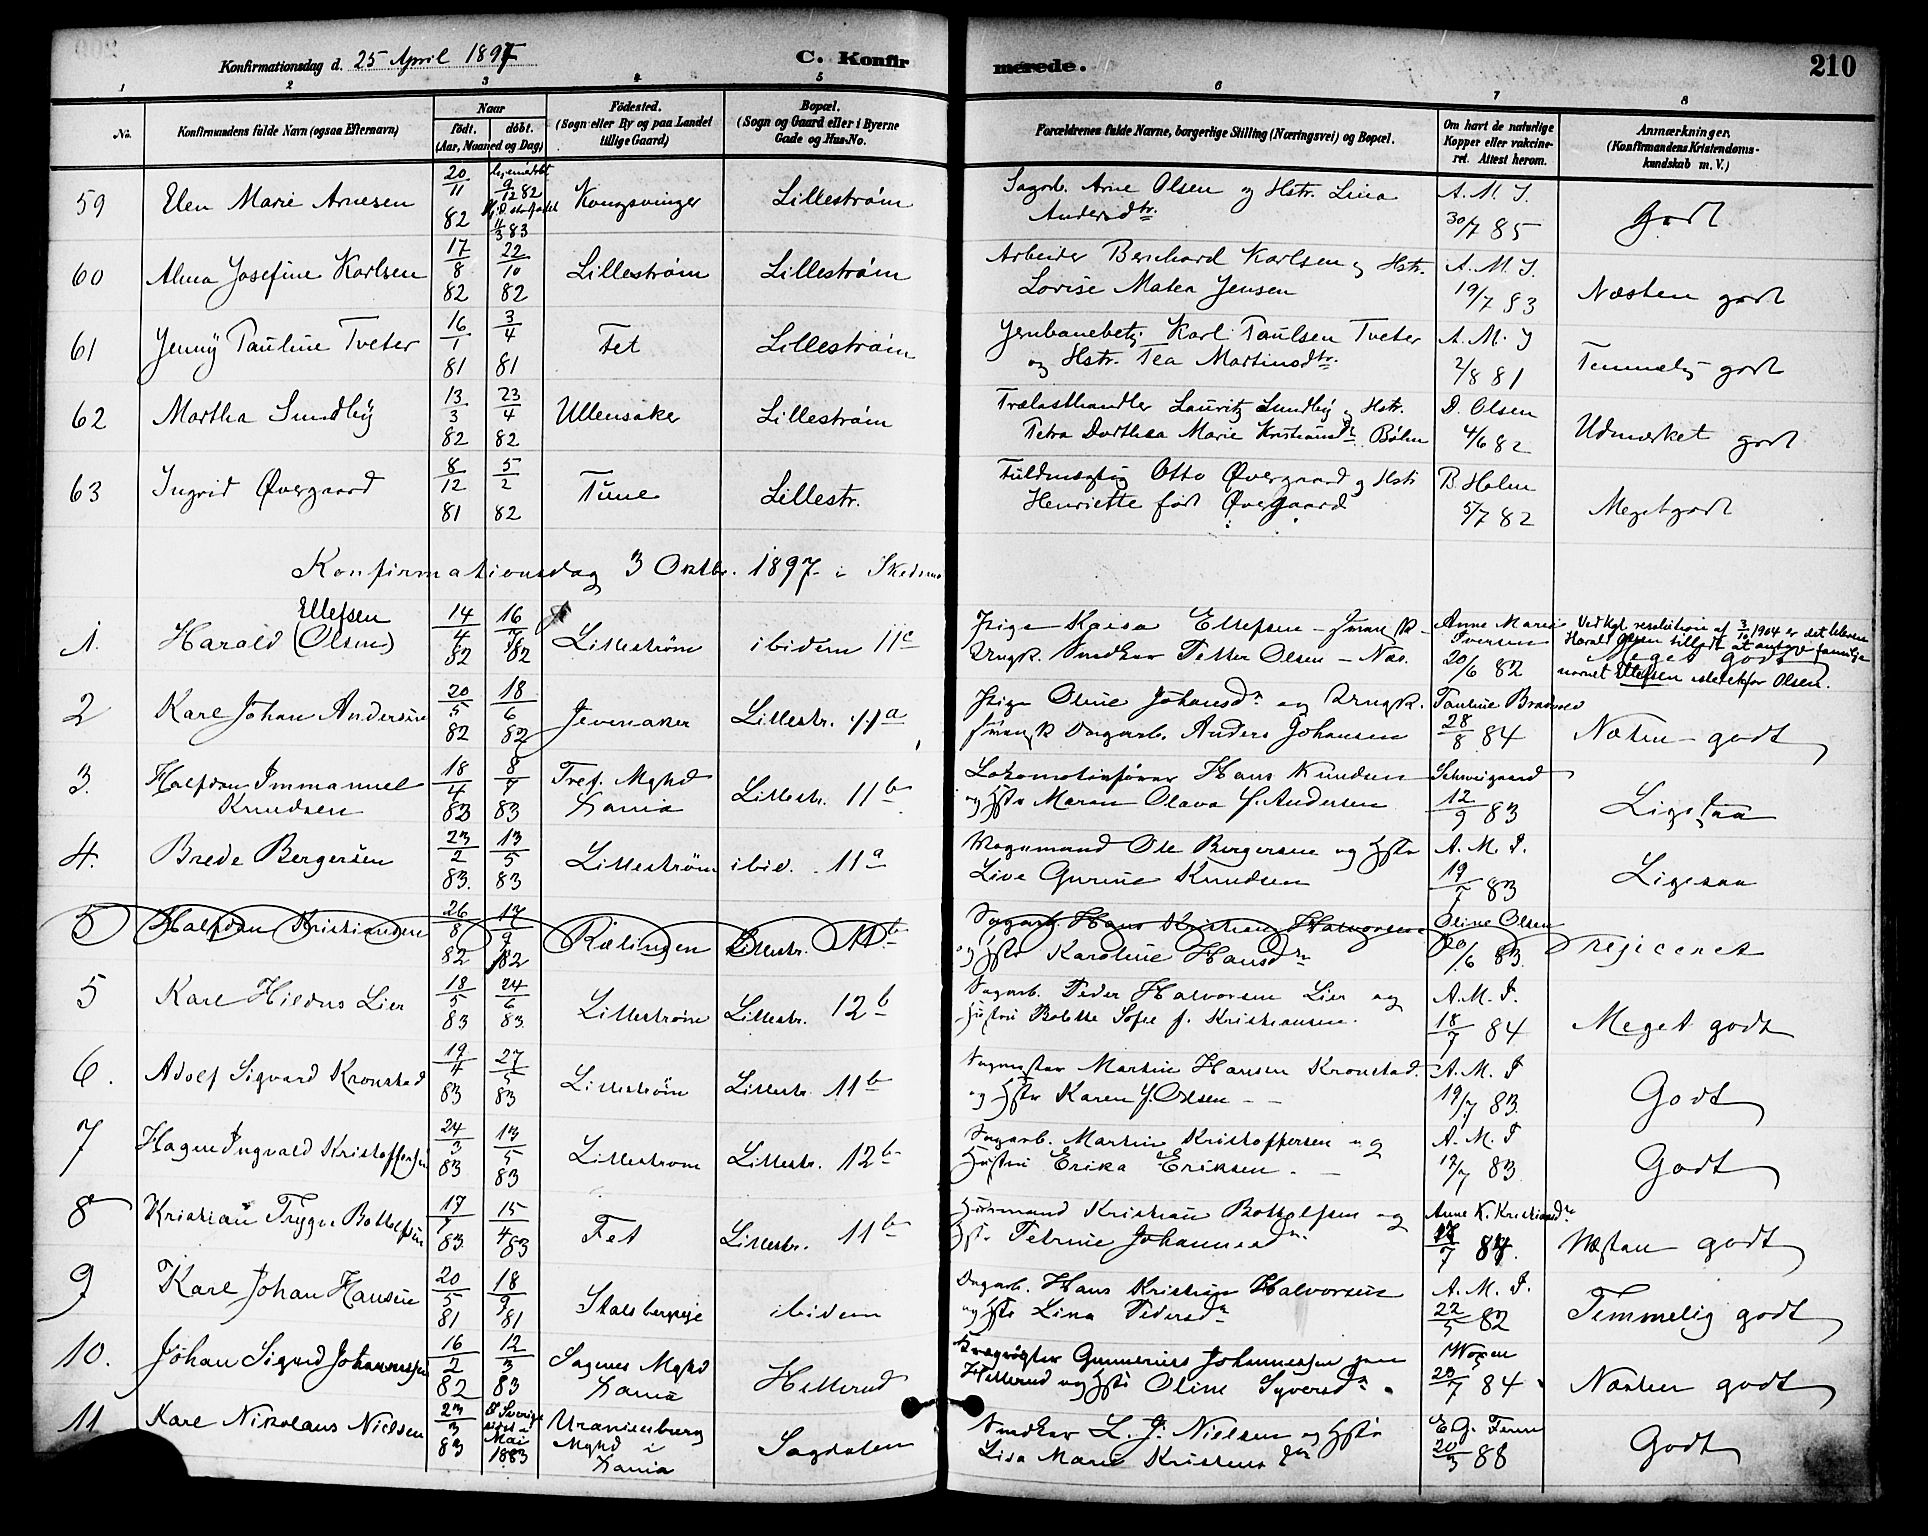 Konfirmationsdag d. 25 April 1897
C. Konfirmerede.
210
1 2 3 4 5 6 7 8
No.
Konfirmandens fulde Navn (ogsaa Efternavn)
Naar
født. døbt.
(Aar, Maaned og Dag)
Födested.
(Sogn eller By og paa Landet
tillige Gaard)
Bopæl.
(Sogn og Gaard eller i Byerne
Gade og Hus-No.
Forældrenes fulde Navne, borgerlige Stilling (Næringsvei) og Bopæl.
Om havt de naturlige
Kopper eller vaccine-
ret. Attest herom.
Anmærkninger.
(Konfirmandens Kristendoms-
kundskab m. V.)
59 Elen Marie Arnesen 20/11 82 hjemmedøbt 9/12 82 4/3 83 Kongsvinger Lillestrøm Sagarb. Arne Olsen og Hstr. Lina
Andersdtr. A. M. I. 30/7 85 Godt
60 Alma Josefine Karlsen 17/8 82 22/10 82 Lillestrøm Lillestrøm Arbeider Bernhard Karlsen og Hstr.
Lovise Matea Jensen A. M. I. 19/7 83 Næsten godt
61 Jenny Pauline Tveter 16/1 81 3/4 81 Fet Lillestrøm Jernbanebetj. Karl Paulsen Tveter
og Hstr. Tea Martinsdtr. A. M. I 2/8 81 Temmelig godt
62 Martha Sundby 13/3 82 23/4 82 Ullensaker Lillestrøm Trælasthandler Lauritz Sundby og Hstr.
Petra Dorthea Marie Kristiansdtr. Bølen D. Olsen 4/6 82 Udmærket godt
63 Ingrid Øvergaard 8/12 81 5/2 82 Tune Lillestr. Fuldmægtig Otto Øvergaard og Hstr
Henriette født Øvergaard B. Holm 5/7 82 Meget godt
Konfirmationsdag 3 Oktbr. 1897 i Skedsmo
1. Harald Ellefsen (Olsen) 14/4 82 16/7 82 Lillestrøm ibidem 11c Pige Kaisa Ellefsen - svensk -
Ungk. Smed Petter Olsen - Næs. Anne Marie
Iversen 20/6 82 Meget godt
Ved kgl. resolution af 3/10 1904 er det bleven
Harald Olsen tilladt at antage familie
navnet Ellefsen istedetfor Olsen.
2 Karl Johan Andersen 20/5 82 18/6 82 Jevnaker Lillestr. 11a Pige Oline Johansdr og Ungk.
svensk Dagarb. Anders Johansen Pauline 28/8 84 Næsten godt
3. Halfdan Immanuel
Knudsen 18/4 83 8/7 83 Tref. Mghd
Xania Lillestr. 11b Lokomotivfører Hans Knudsen
og Hstr Maren Olava f. Andersen Schweigaard 12/9 83 Ligesaa
4. Brede Bergersen 23/2 83. 13/5 83 Lillestrøm ibid. 11a Vognmand Ole Bergersen og Hstr
Live Gurine Knudsen A. M. I. 19/7 83 Ligesaa
5 Halfdan Kristiansen 26/8 82 17/9 82 Rælingen Lillestr. 11b Sagarb. Hans Kristian Halvorsen
og Hstr Karoline Hansdr Oline Olsen 20/6 83. rejiceret
5 Karl Hildus Lier 18/5 83 24/6 83. Lillestrøm Lillestr. 12b Sagarb. Peder Halvorsen Lier og
Hustru Bolette Sofie f. Kristiansen. A. M. I. 18/7 84 Meget godt
6. Adolf Sigvard Kronstad 19/4 83 27/5 83 Lillestrøm Lillestr. 11b Sagmester Martin Hansen Kronstad.
og Hstr Karen f. Olsen - - A. M. I 19/7 83. Godt
7 Hagen Ingvald Kristoffersen 24/3 83 13/5 83 Lillestrøm Lillestr. 12b Sagarb. Martin Kristoffersen og
Hustru Erika Eriksen. A. M. I 12/7 83 Godt
8 Kristian Trygve Bottolfsen 17/1 83. 15/4 83 Fet Lillestr. 11b Huusmand Kristian Bottolfsen og
Hstr. Petrine Johannesdr. Anne K. Kristiansdr /7 84. Næsten godt
9 Karl Johan Hansen 20/5 81 18/9 81 Stalsbergeie ibidem Dagarb. Hans Kristian Halvorsen
og Hstr Lina Pedersdr A. M. I. 22/5 82 Temmelig godt
10. Johan Sigurd Johannessen 16/2 82 12/3 83 Sagenes Mghd
Xania Hellerud Gunnerius Johannessen
Hellerud og Hstr Oline Syversdr. 23/7 84 Næsten godt
11 Karl Nikolaus Nielsen 23/3 83 I Sverige
Mai
1883 Uranienborg
Mghd i
Xania Sagdalen L. J. Nielsen og Hstr
Lisa Marie Kristensdtr E. G. 20/3 88 Godt